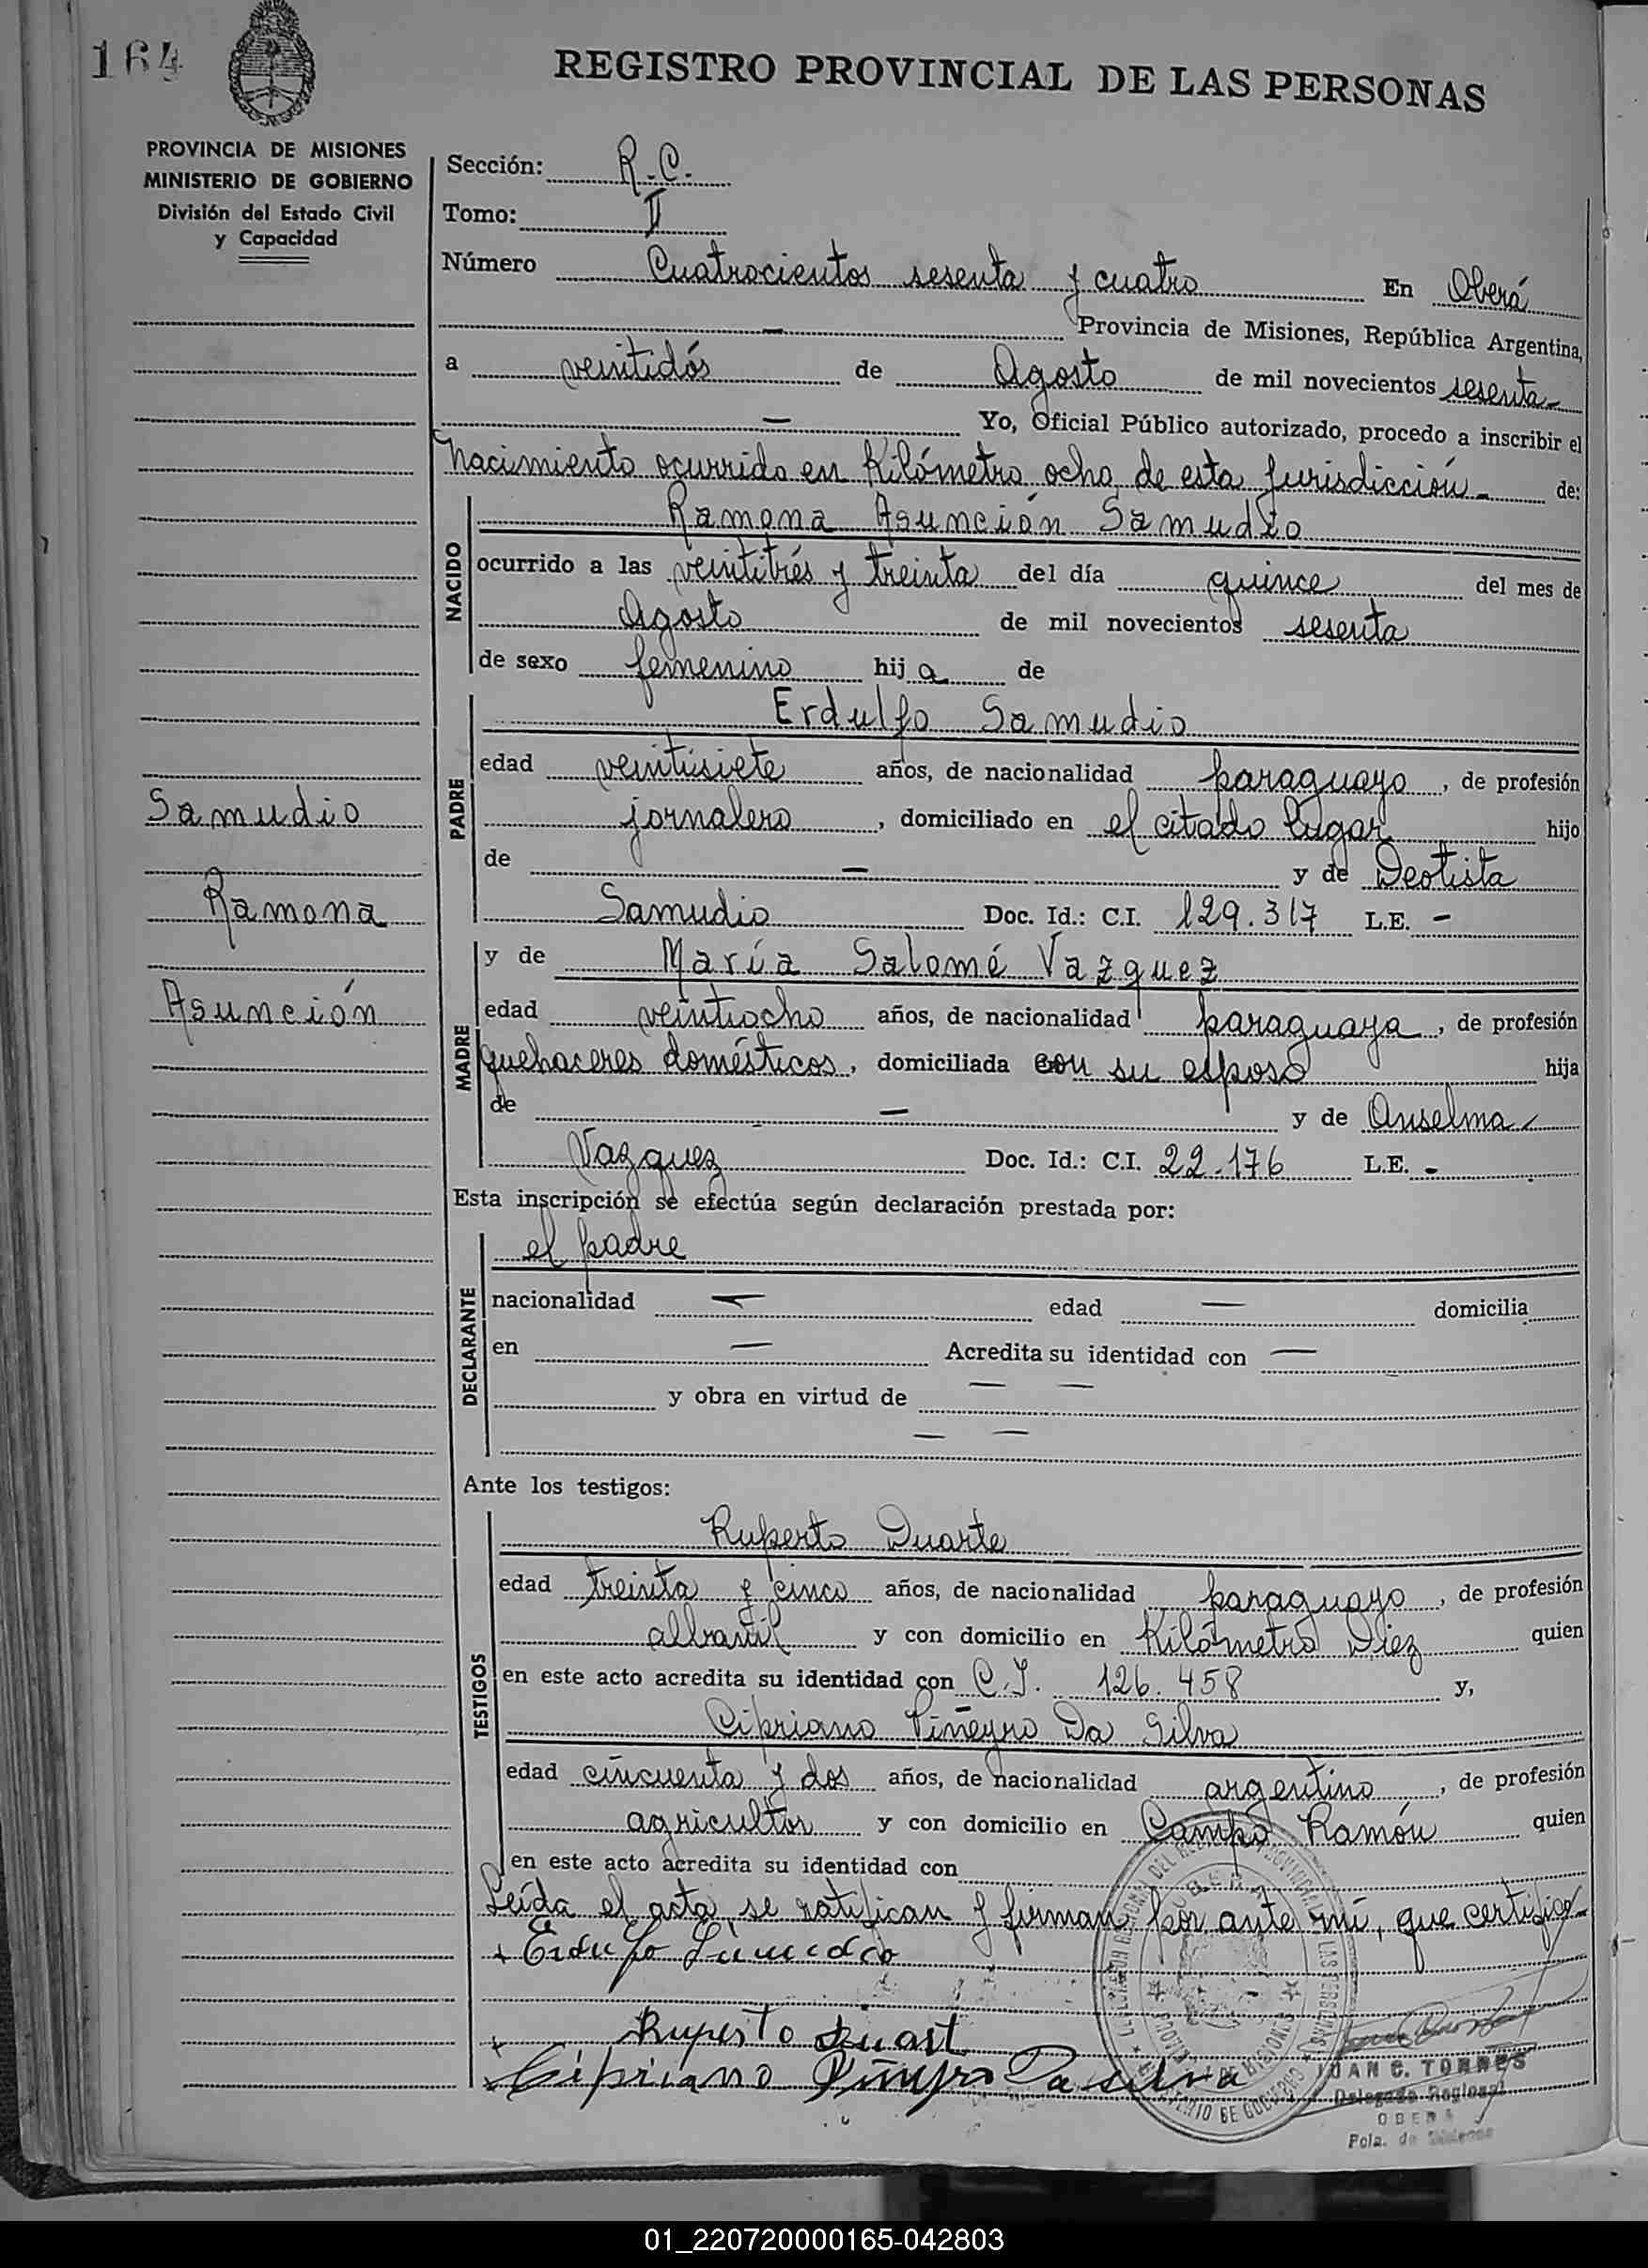 164
REGISTRO PROVINCIAL DE LAS PERSONAS
PROVINCIA DE MISIONES
MINISTERIO DE GOBIERNO
División del Estado Civil
y Capacidad
Sección: R.C.
Tomo: II
Número Cuatrocientos sesenta y cuatro En Oberá
— Provincia de Misiones, República Argentina,
a veintidós de Agosto de mil novecientos sesenta-
— Yo, Oficial Público autorizado, procedo a inscribir el
Nacimiento ocurrido en Kilómetro ocho de esta Jurisdicción - de:
NACIDO
Ramona Asunción Samudio
ocurrido a las veintitrés y treinta del día quince del mes de
Agosto de mil novecientos sesenta
de sexo femenino hija de
PADRE
Erdulfo Samudio
edad veintisiete años, de nacionalidad paraguayo, de profesión
jornalero, domiciliado en el citado lugar hijo
de — y de Deotista
Samudio Doc. Id.: C.I. 129.317 L.E. -
Samudio
Ramona
Asunción
MADRE
y de María Salomé Vazquez
edad veintiocho años, de nacionalidad paraguaya, de profesión
quehaceres domésticos, domiciliada con su esposo hija
de — y de Anselma
Vazquez Doc. Id.: C.I. 22.176 L.E. -
Esta inscripción se efectúa según declaración prestada por:
DECLARANTE
el padre
nacionalidad — edad — domicilia
en — Acredita su identidad con —
y obra en virtud de — —
— —
Ante los testigos:
TESTIGOS
Ruperto Duarte
edad treinta y cinco años, de nacionalidad paraguayo, de profesión
albañil y con domicilio en Kilómetro Diez quien
en este acto acredita su identidad con C.I. 126.458 y,
Cipriano Piñeyro Da Silva
edad cincuenta y dos años, de nacionalidad argentino, de profesión
agricultor y con domicilio en Campo Ramón quien
en este acto acredita su identidad con
Leída el acta se ratifican y firman por ante mí, que certifico-
Ruperto Duart
Cipriano Piñeyro Da Silva
JUAN C. TORRES
Delegado Regional
OBERA
Pcia. de Misiones
01_220720000165-042803